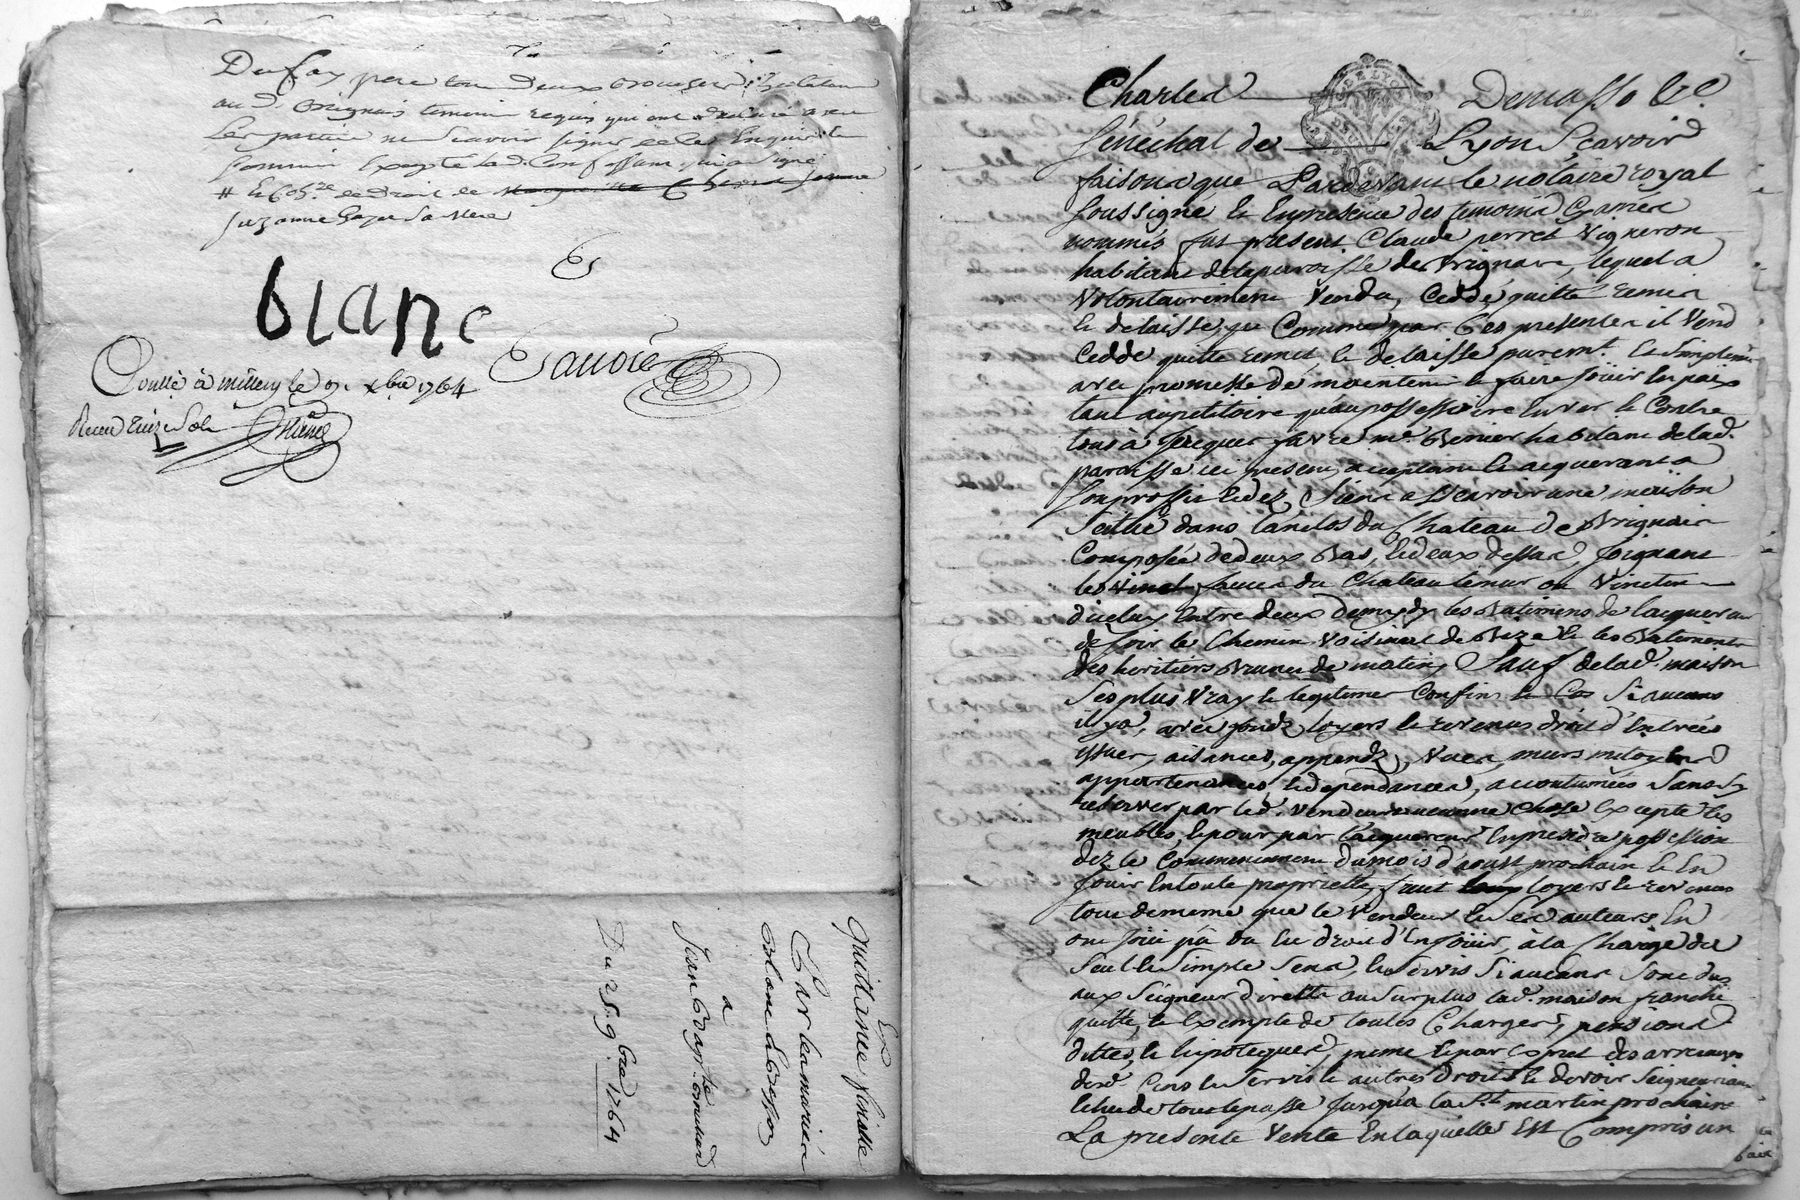 Dufay père tous deux
au d. Brignais temoins requis qui ont
les parties ne scavoir signer de ces Enquis et
sommés Excepté lad. Confessante qui a signé
# Et Cohre. de droit de
suzanne sa Mere
Es
blanc
Savoie
Conllé à millery le 9. xbre 1764
Receu treize sols
Quittance finalle
Et
Charle marie
Blanc
a
Jean Bapte.
Du 25. 9bre 1764
Charles Demasso &c.
Sénéchal de Lyon Scavoir
faisons que Pardevant le notaire royal
soussigné Et En presence des temoins Cy apres
nommés fut present Claude perret Vigneron
habitant de la paroisse de Brignais, lequel a
Volontairement Vendu, Ceddé, quitté remis
Et delaissé, que Comme par Ces presentes il Vend
Cedde quitte remet Et delaisse puremt. Et simplemt
avec promesse de maintenir Et faire Joüir En paix
tant au petitoire qu'au possessoire Envers Et Contre
tous à Jacques favre me. habitant de lad.
paroisse ici present, acceptant Et acquerant a
son proffit Et des Siens a scavoir une maison
scitué dans l'anclos du Chateau de Brignais
Composée de deux Bas, Et deux dessus, Joignant
les du Chateau le mur ou Vinctin
d'iceluy Entre deux de midy les Batimens de l'acquereur
de soir le Chemin Voisinal de Bize Et les Batimens
des heritiers Brunet de matin, Sauf de lad. maison
ses plus Vray Et legitimes Confins Et Cas Si aucuns
il y a, avec fonds, loyers Et revenus droit d'Entrées
issues, aisances, appends, Vues, murs mitoyens
appartenances, Et dependances, accoutumées sans Sy
reserver par led. Vendeur aucune Chose Excepté les
meubles, Et pour par l'acquereur En prendre possession
dez le Commencement du mois d'aoust prochain Et En
Jouir En toute proprietté, fruit loyers Et revenus
tout de meme que le Vendeur Et Ses auteurs En
ont Joüi pû ou Eu droit d'En Joüir, à la Charge du
seul Et Simple Sens, Et Servis Si aucuns Sont dus
aux Seigneur directe au Surplus lad. maison franche
quitte, Et Exempte de toutes Charges, pensions
dettes, Et hipoteques, meme Et par Exprès des arrerages
desd. Cens Et Servis Et autres Droits Et devoir Seigneuriaux
Echu de tout le passé Jusqu'a la St. martin prochaine
La presente Vente En laquelle Est Compris un